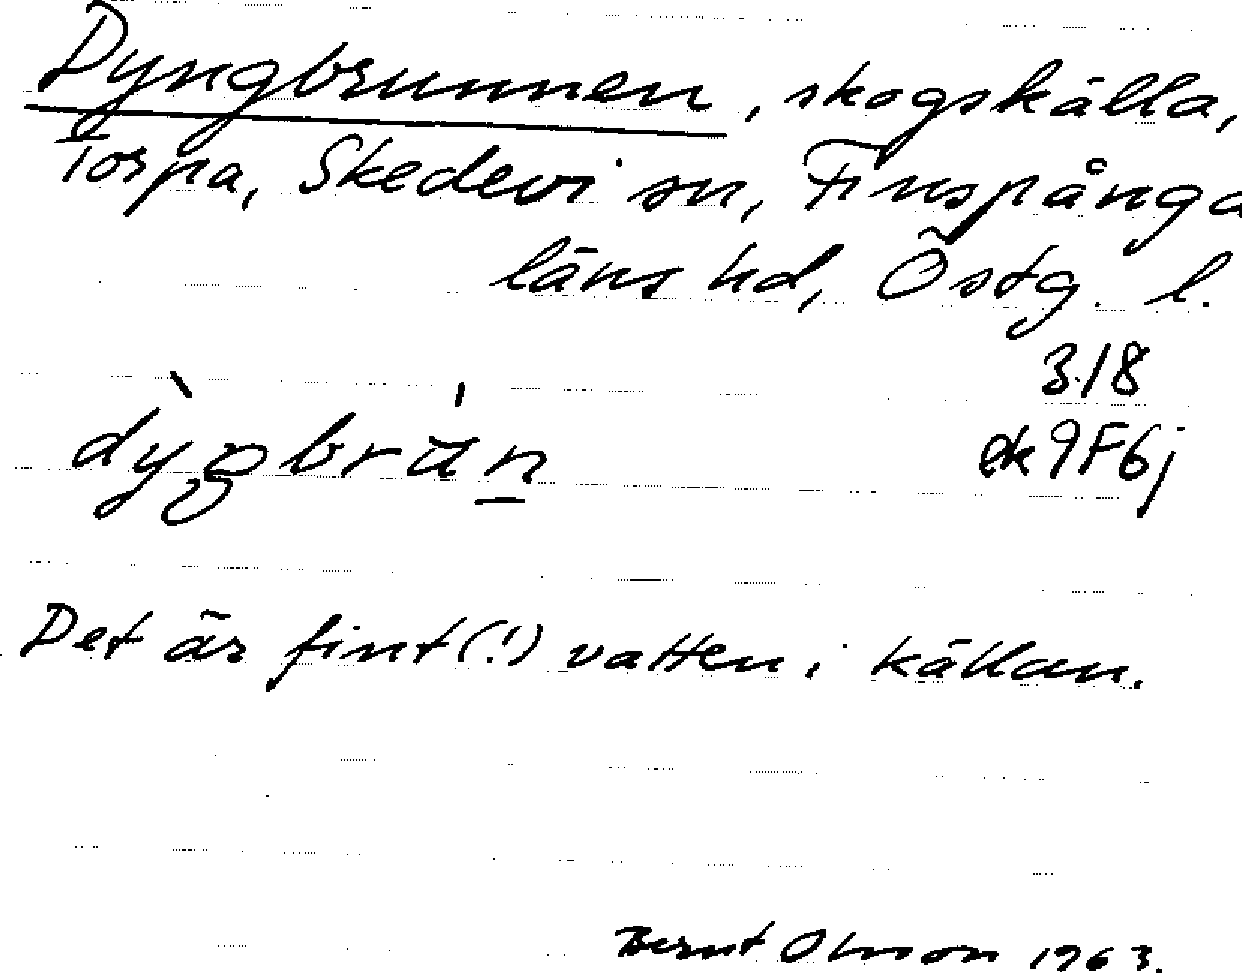 Dyngbrunnen, skogskälla,
Torpa, Skedevi sn, Finspånga
läns hd, Östg. l.
318
ek 9F6j
Det är fint(!) vatten i källan.
Bernt Olsson 1963.